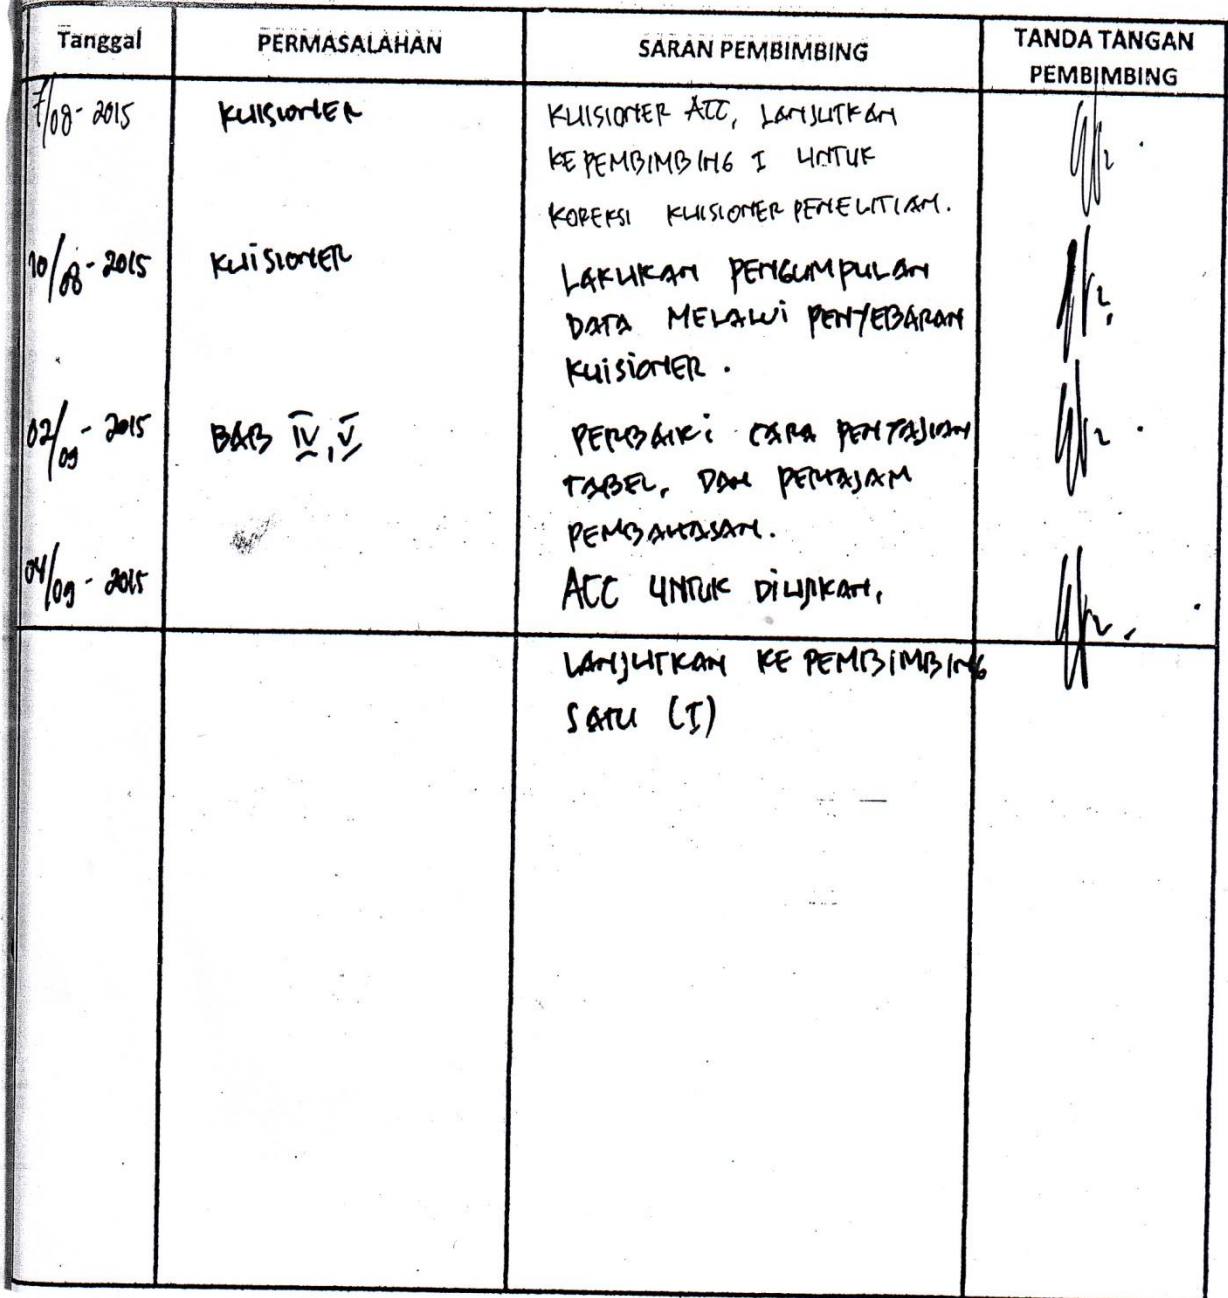 Tanggal PERMASALAHAN SARAN PEMBIMBING TANDA TANGAN
PEMBIMBING
7/08-2015 KUISIONER KUISIONER ACC, LANJUTKAN
KE PEMBIMBING I UNTUK
KOREKSI KUISIONER PENELITIAN.
10/08-2015 KUISIONER LAKUKAN PENGUMPULAN
DATA MELALUI PENYEBARAN
KUISIONER.
02/09-2015 BAB IV, V PERBAIKI CARA PENYAJIAN
TABEL, DAN PERTAJAM
PEMBAHASAN.
04/09-2015 ACC UNTUK DIUJIKAN,
LANJUTKAN KE PEMBIMBING
SATU (I)